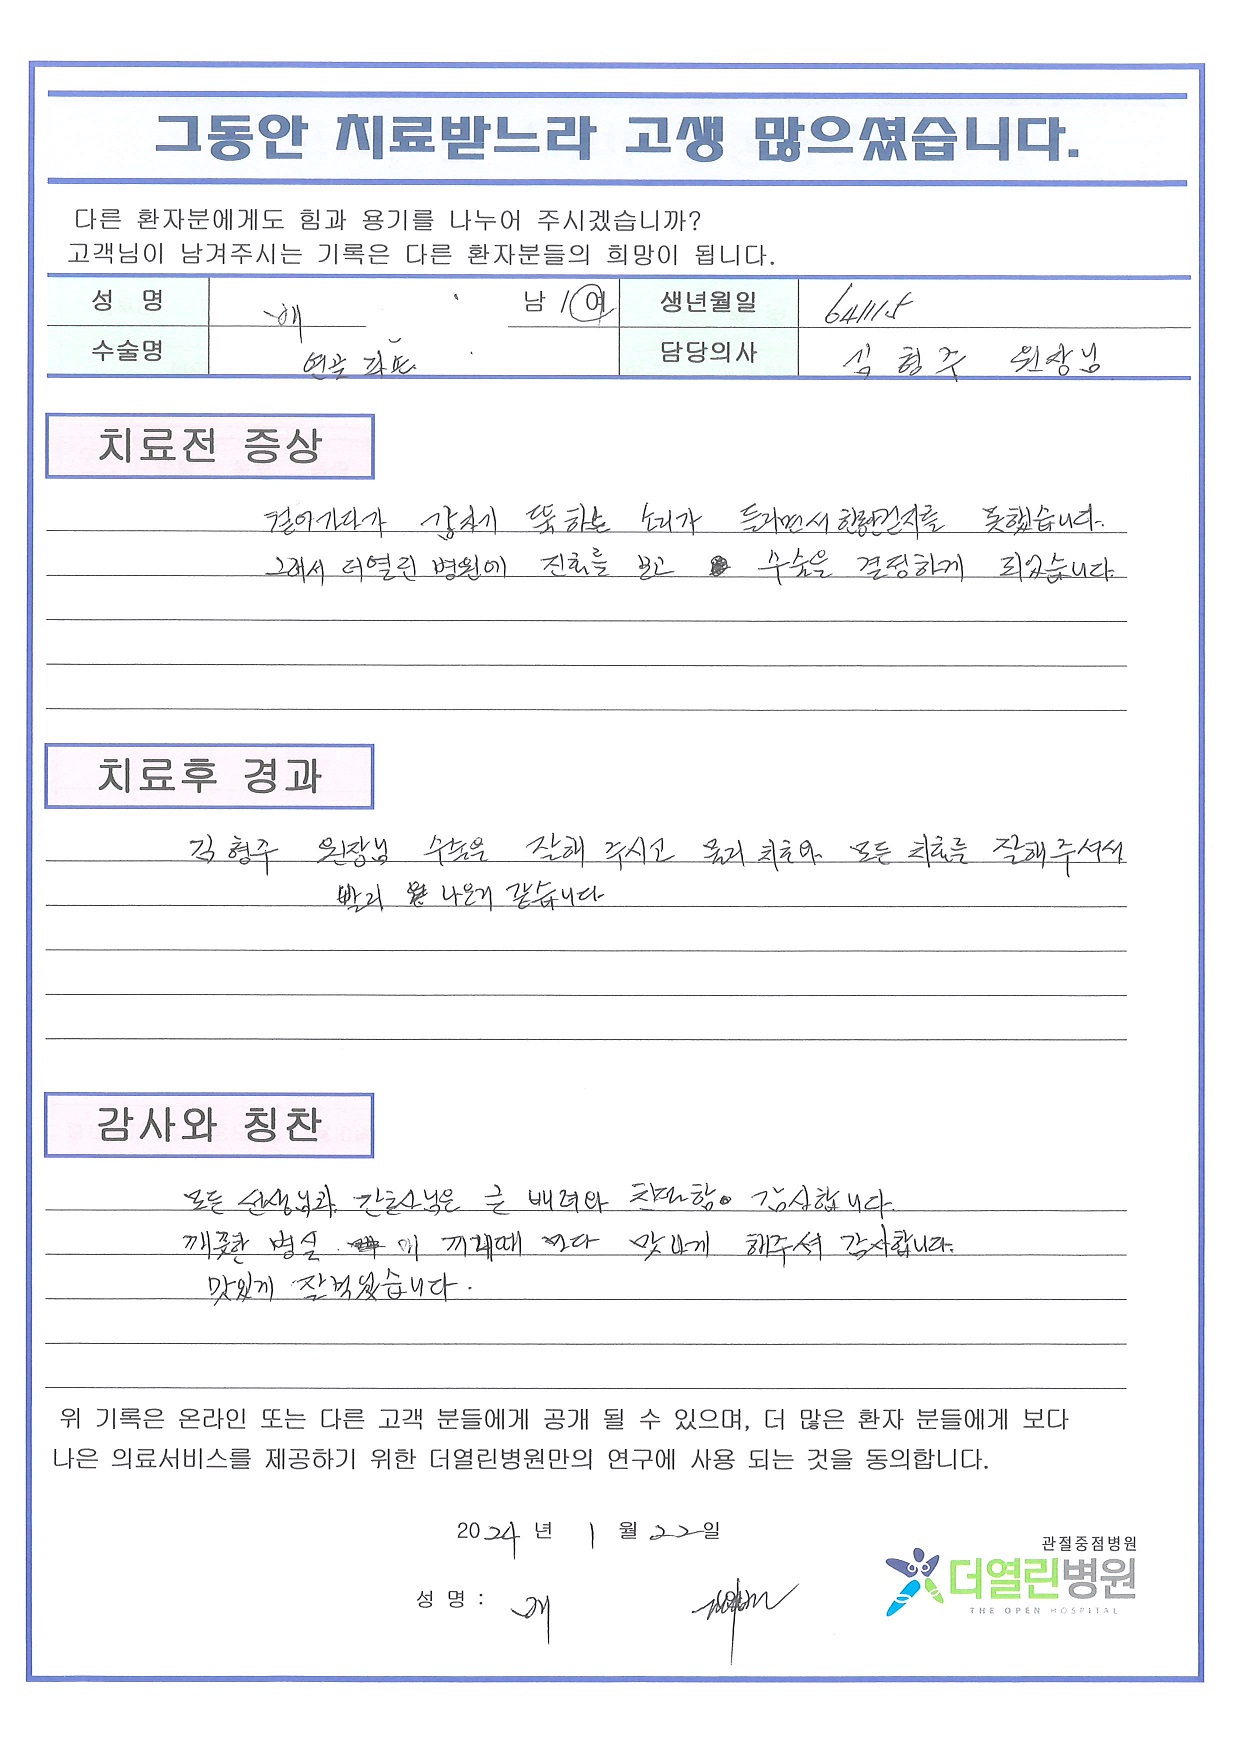 그동안 치료받느라 고생 많으셨습니다.
다른 환자분에게도 힘과 용기를 나누어 주시겠습니까?
고객님이 남겨주시는 기록은 다른 환자분들의 희망이 됩니다.
성 명 해 남 / 여 생년월일 641115
수술명 연골 파트 담당의사 김 형 주 원장님
치료전 증상
걸어가다가 갑자기 뚝 하는 소리가 들리면서 한발짝 걷지를 못했습니다.
그래서 더열린 병원에 진료를 보고 수술을 결정하게 되었습니다.
치료후 경과
김 형주 원장님 수술은 잘해 주시고 물리 치료와 모든 치료를 잘해주셔서
빨리 나은거 같습니다
감사와 칭찬
모든 선생님과 간호사님은 큰 배려와 친절함 감사합니다.
깨끗한 병실 매 끼때마다 맛나게 해주셔 감사합니다.
맛있게 잘먹었습니다.
위 기록은 온라인 또는 다른 고객 분들에게 공개 될 수 있으며, 더 많은 환자 분들에게 보다
나은 의료서비스를 제공하기 위한 더열린병원만의 연구에 사용 되는 것을 동의합니다.
2024 년 1 월 22일
관절중점병원
더열린병원
THE OPEN HOSPITAL
성 명 : 해